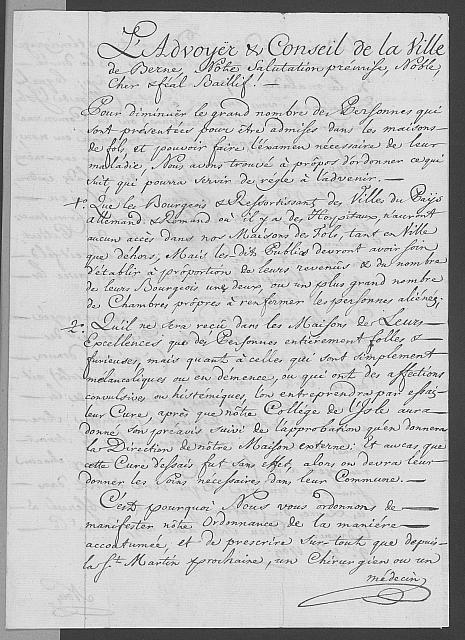 L'Advoyër & Conseil de la Ville
de Berne, Nôtre Salutation prémise, Noble,
Cher & féal Baillif! —
Pour diminuër le grand nombre des Personnes qui
sont présentées pour être admises dans les maisons
de fols, et pouvoir faire l'éxamen nécessaire de leur
maladie, Nous avons trouvé à prôpos d'ordonner ce qui
suit, qui pourra servir de règle à l'advenir. —
1.° Que les Bourgeois & Ressortissants des Villes du Païs
Allemand & Romand où il y a des Hopitaux, n'auront
aucun accès dans nos Maisons des Fols, tant en Ville
que dehors, Mais les dits Publics devront avoir soin
d'établir à proportion de leurs revenûs & du nombre
de leurs Bourgeois un, deux, ou un plus grand nombre
de Chambres prôpres à renfermer les personnes aliénées;
2.° Qu'il ne sera reçû dans les Maisons de Leurs —
Excellences que des Personnes entièrement folles & —
furieuses, mais quant à celles qui sont simplement
mélancoliques ou en démence, ou qui ont des affections
convulsives ou histeriques, l'on entreprendra par essai
leur Cure, après que nôtre Collège de l'Isle aura —
donné son préavis suivi de l'approbation qu'en donnera
la Direction de nôtre Maison externe: Et au cas que
cette Cure d'essais fut sans effet, alors on devra leur
donner les soins nécessaires dans leur Commune. —
C'est pourquoi Nous vous ordonnons de —
manifester nôtre Ordonnance de la manière —
accoutumée, et de prescrire sur tout que depuis
la S.t Martin prochaine, un Chirurgien ou un
médecin